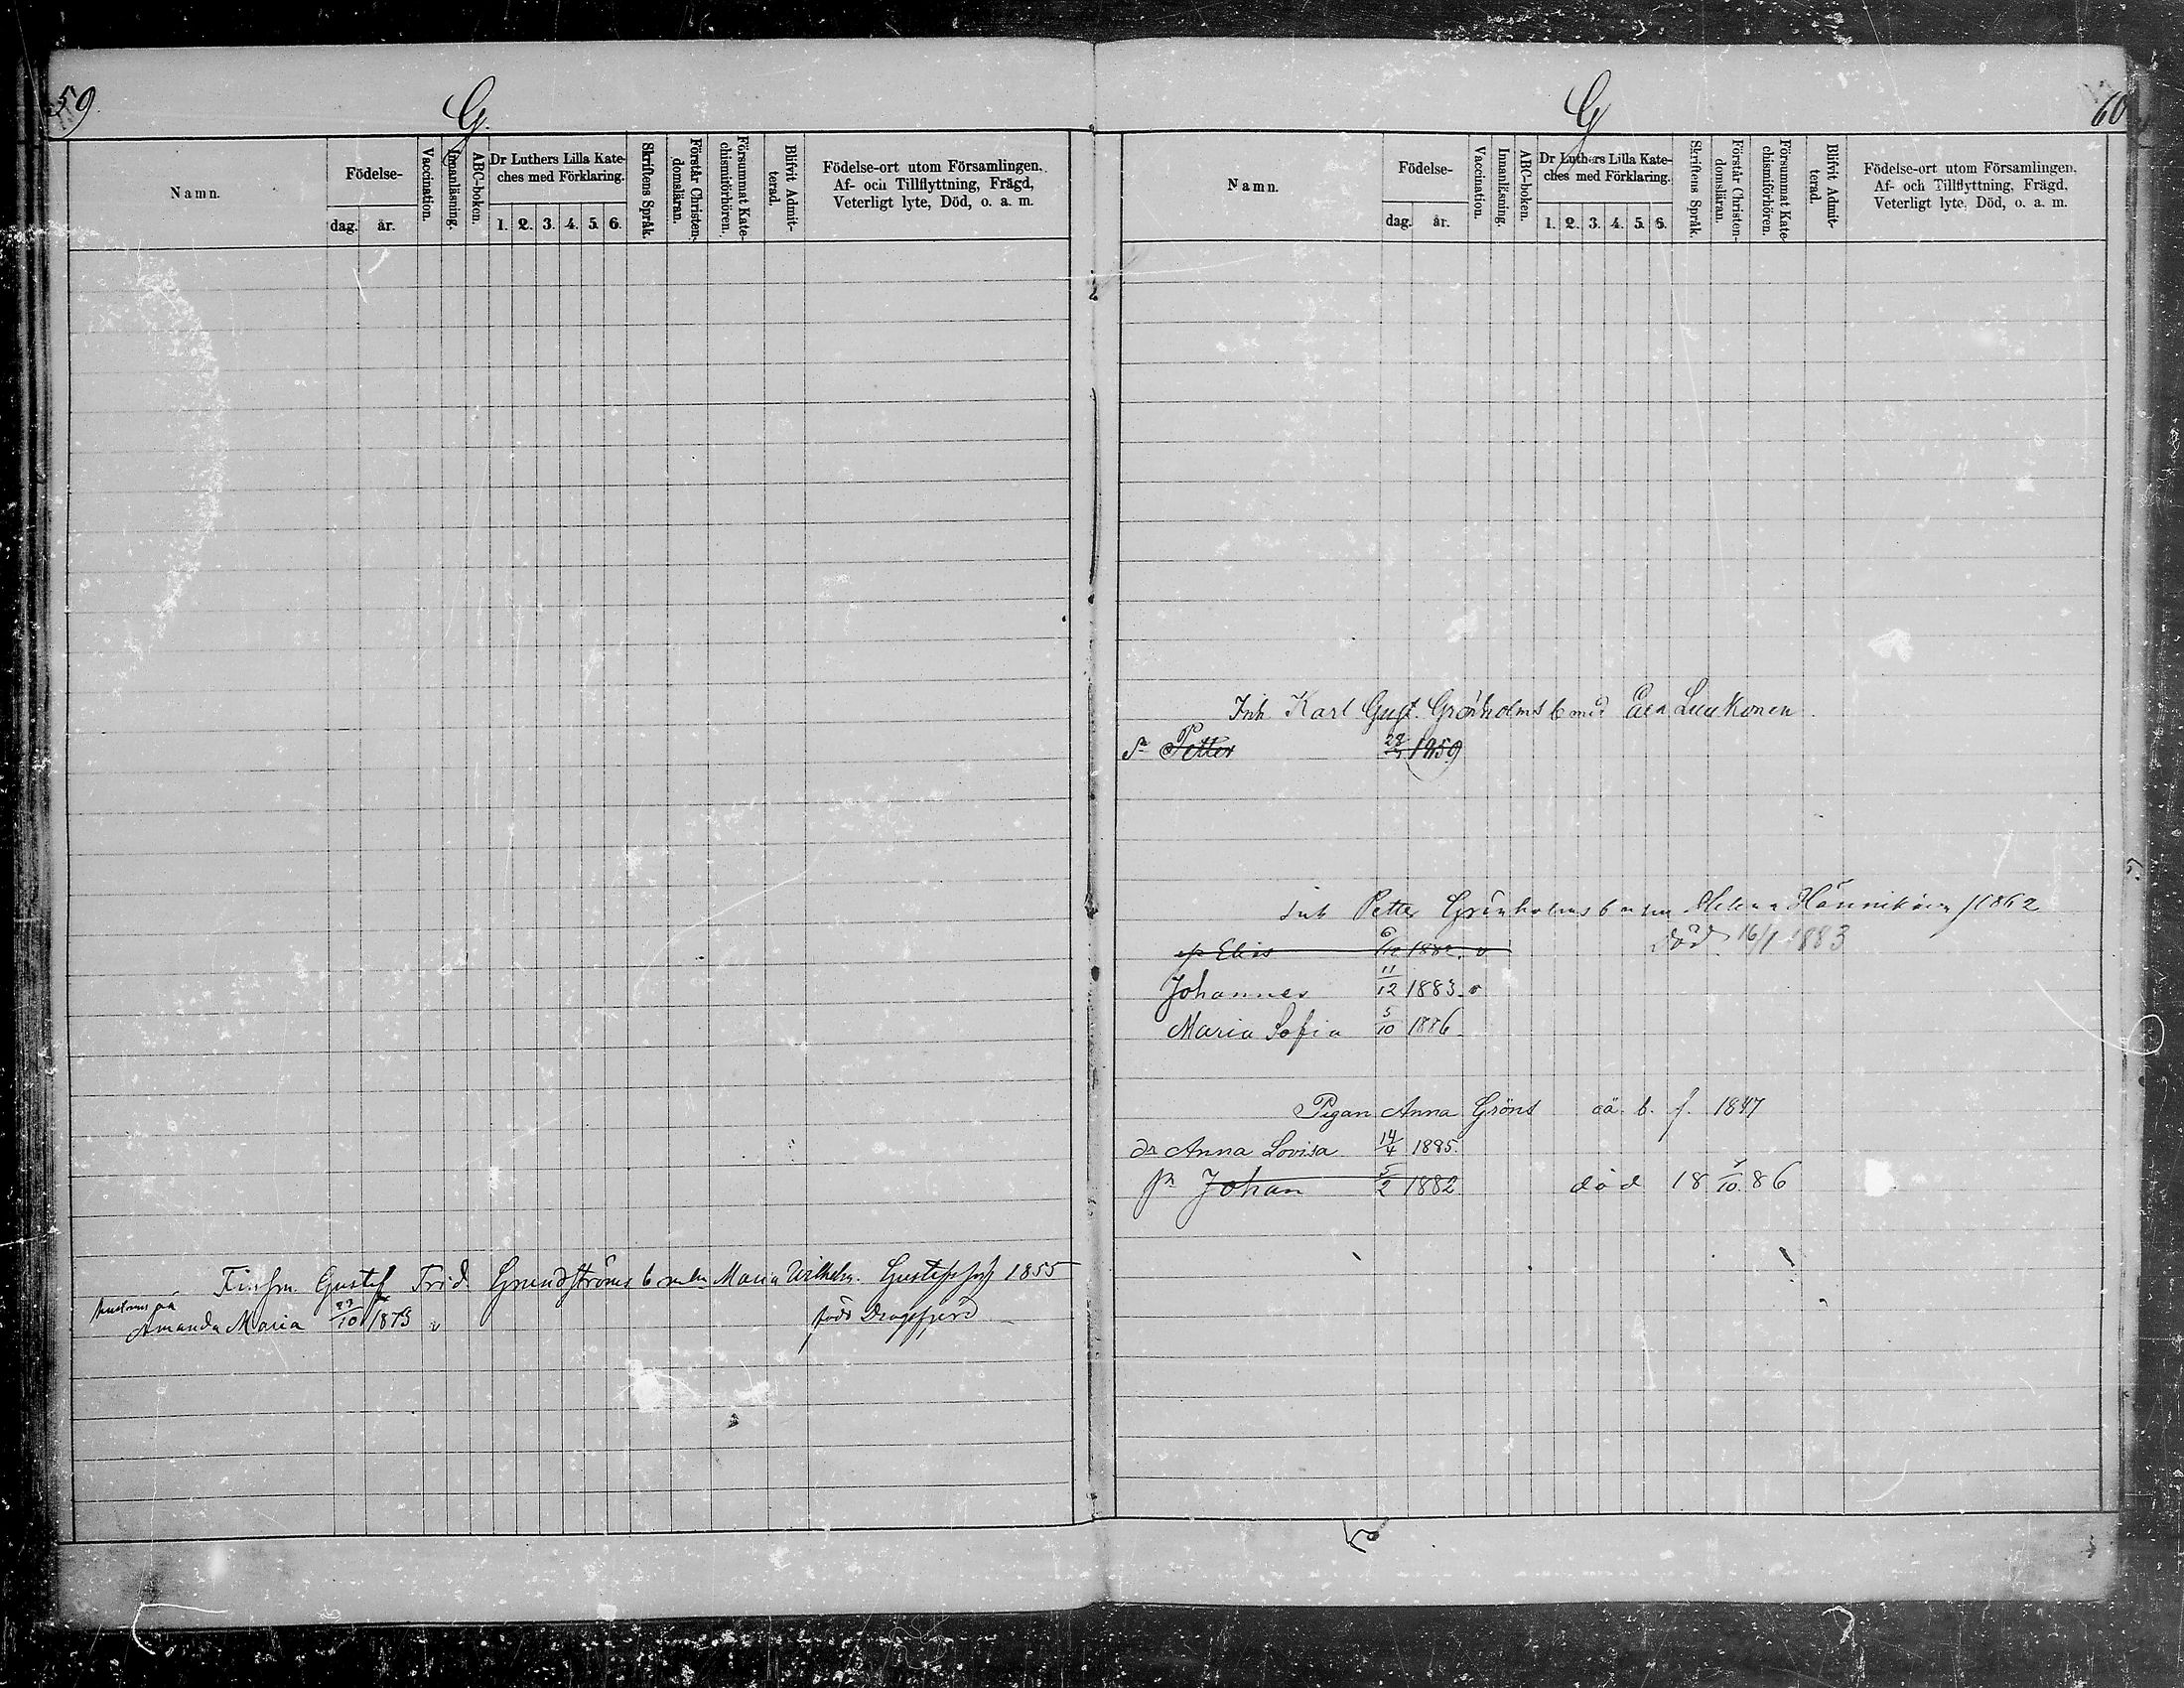 59
G.
Namn.
Födelse-
dag. år.
Vaccination.
Innanläsning.
ABC-boken.
Dr Luthers Lilla Kate-
ches med Förklaring.
1. 2. 3. 4. 5. 6.
Skriftens Språk.
Förstår Christen-
domsläran.
Försummat Kate-
chismiförhören.
Blifvit Admit-
terad.
Födelse-ort utom Församlingen.
Af- och Tillflyttning, Frägd,
Veterligt lyte, Död, o. a. m.
Gustef Frid. Grundströms b m Maria Wilhelm. 1855
Amanda Maria 23/10 1873 v född Dragsfjerd
G
60
Namn.
Födelse-
dag. år.
Vaccination.
Innanläsning.
ABC-boken.
Dr Luthers Lilla Kate-
ches med Förklaring.
1. 2. 3. 4. 5. 6.
Skriftens Språk.
Förstår Christen-
domsläran.
Försummat Kate-
chismiförhören.
Blifvit Admit-
terad.
Födelse-ort utom Församlingen.
Af- och Tillflyttning, Frägd,
Veterligt lyte, Död, o. a. m.
Inh Karl Gust. Grönholms b med Eva Luukonen
Sn Petter 1859
Inh Petter Grönholms b m Helena Hännikäin f 1862
Elis 6/12 1882. v död 16/1 1883
Johannes 11/12 1883. v
Maria Sofia 5/10 1886
Pigan Anna Gröns oä. b. f. 1847
dr Anna Lovisa 14/4 1885.
sn Johan 5/2 1882 död 18 /10. 86